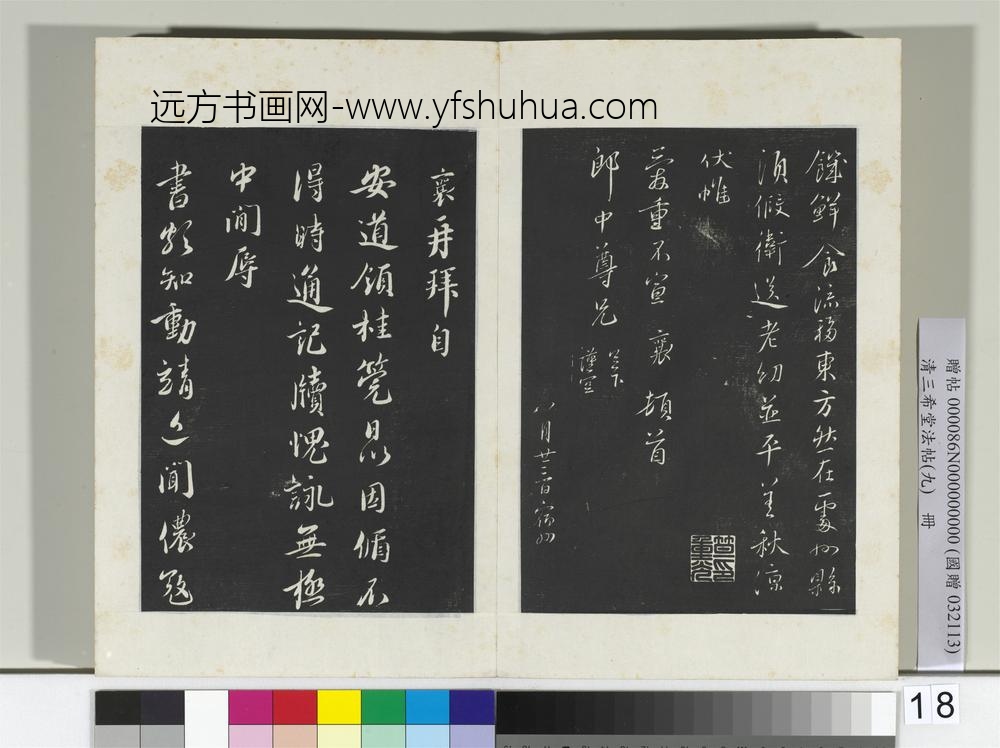 远方书画网-www.yfshuhua.com
饑鮮食流移東方然在處州縣
須假衛送老幼並平善秋涼
伏惟
愛重不宣 襄 頓首
郎中尊兄 足下 謹空
八月廿三日宿州
襄再拜自
安道領桂筦因循不
得時通記牘愧詠無極
中間辱
書頗知動靖近聞儂寇
贈帖 000086N000000000 (國贈 032113)
清三希堂法帖(九) 冊
18